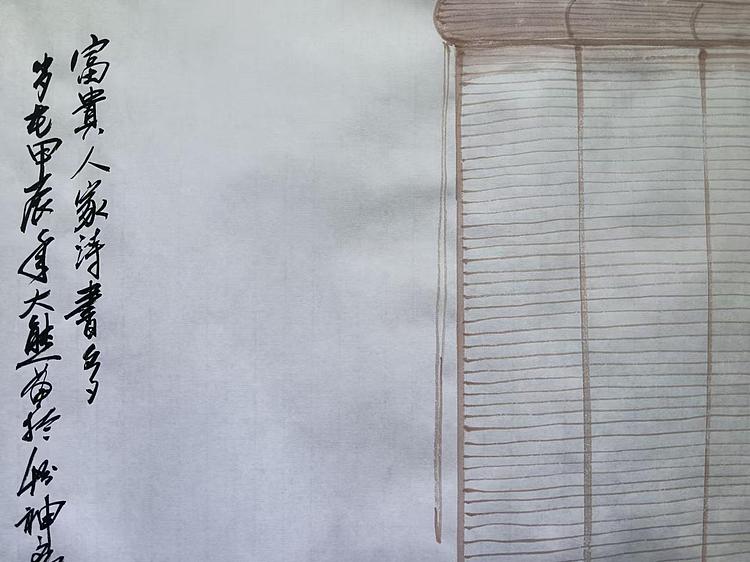 富貴人家詩書多
岁在甲辰年大熊苗于